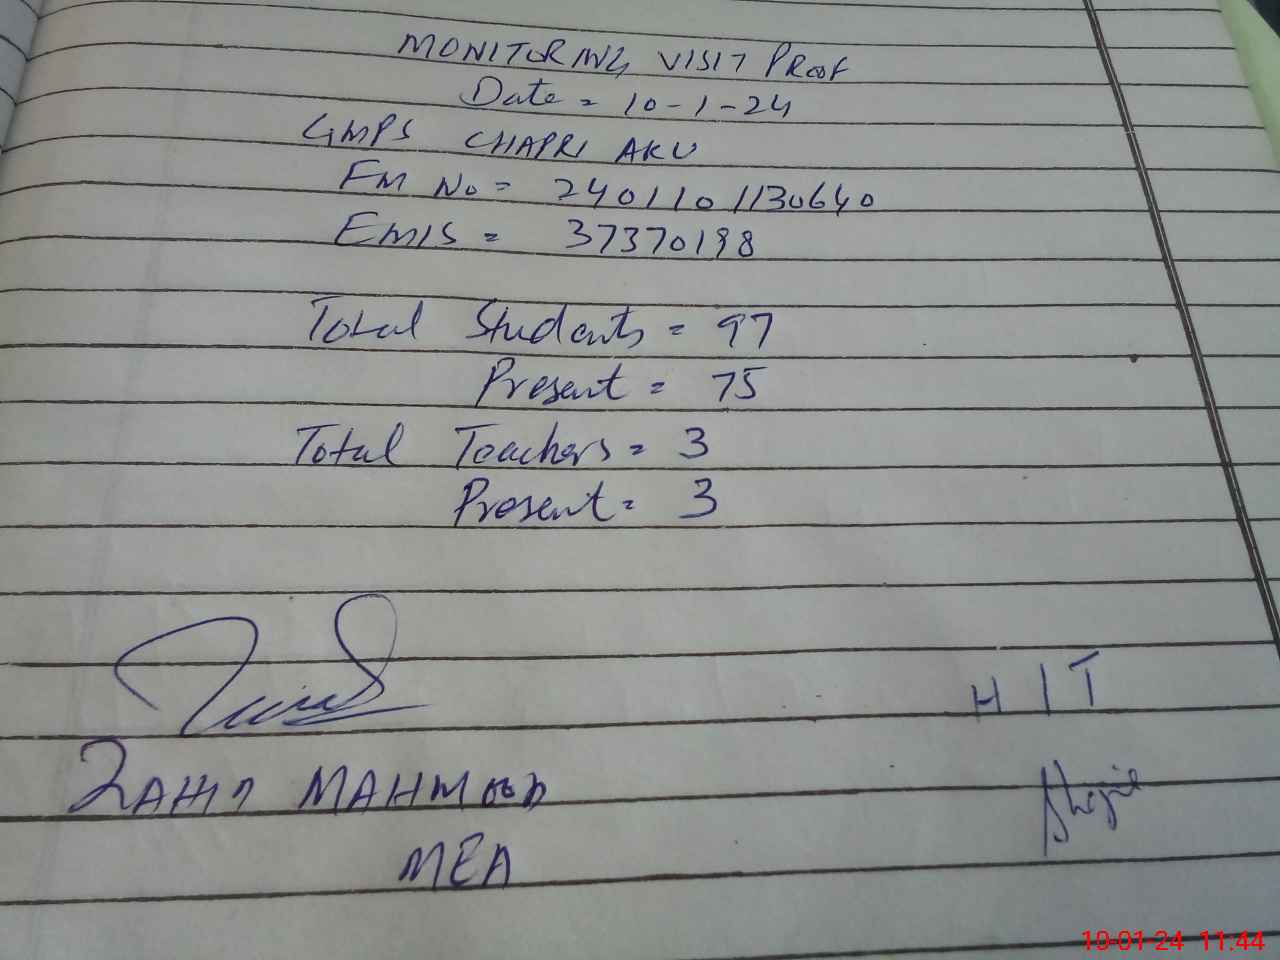 MONITORING VISIT PROOF
Date = 10-1-24
GMPS CHAPRI AKU
FM No = 2401101130640
EMIS = 37370198
Total Students = 97
Present = 75
Total Teachers = 3
Present = 3
H/T
MAHMOOD
MEA
10-01-24 11:44